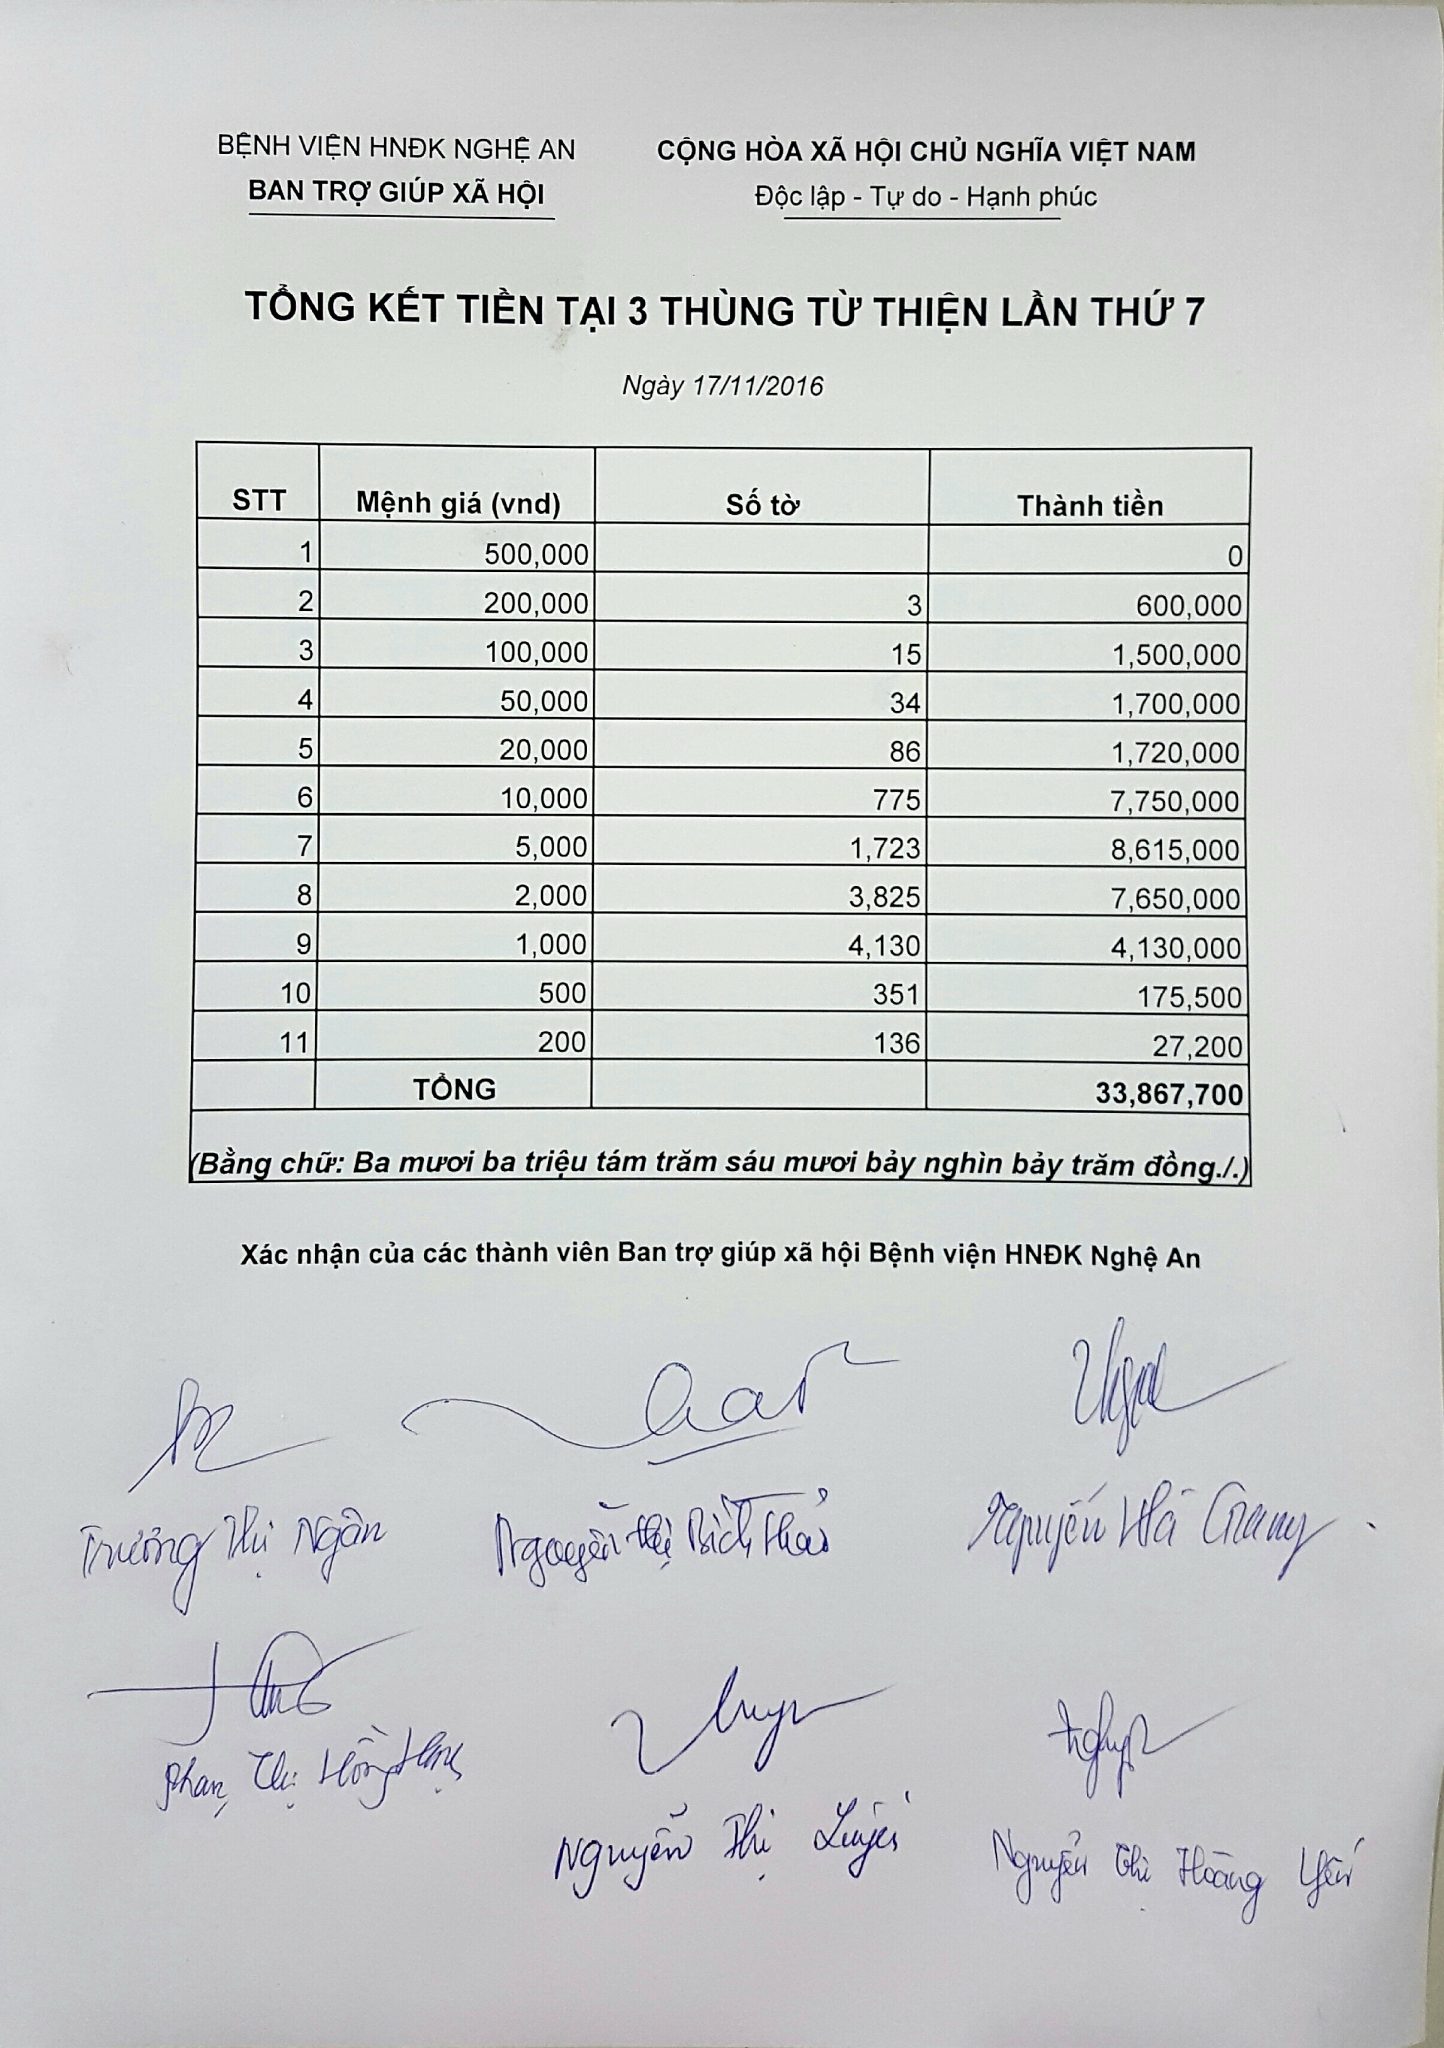 BỆNH VIỆN HNĐK NGHỆ AN
BAN TRỢ GIÚP XÃ HỘI
CỘNG HÒA XÃ HỘI CHỦ NGHĨA VIỆT NAM
Độc lập - Tự do - Hạnh phúc
TỔNG KẾT TIỀN TẠI 3 THÙNG TỪ THIỆN LẦN THỨ 7
Ngày 17/11/2016
STT Mệnh giá (vnd) Số tờ Thành tiền
1 500,000 0
2 200,000 3 600,000
3 100,000 15 1,500,000
4 50,000 34 1,700,000
5 20,000 86 1,720,000
6 10,000 775 7,750,000
7 5,000 1,723 8,615,000
8 2,000 3,825 7,650,000
9 1,000 4,130 4,130,000
10 500 351 175,500
11 200 136 27,200
TỔNG 33,867,700
(Bằng chữ: Ba mươi ba triệu tám trăm sáu mươi bảy nghìn bảy trăm đồng./.)
Xác nhận của các thành viên Ban trợ giúp xã hội Bệnh viện HNĐK Nghệ An
Trương Thị Ngân Nguyễn Thị Bích Thảo Nguyễn Hà Giang
Phan Thị Hồng Hạnh
Nguyễn Thị Nguyễn Thị Hoàng Yến